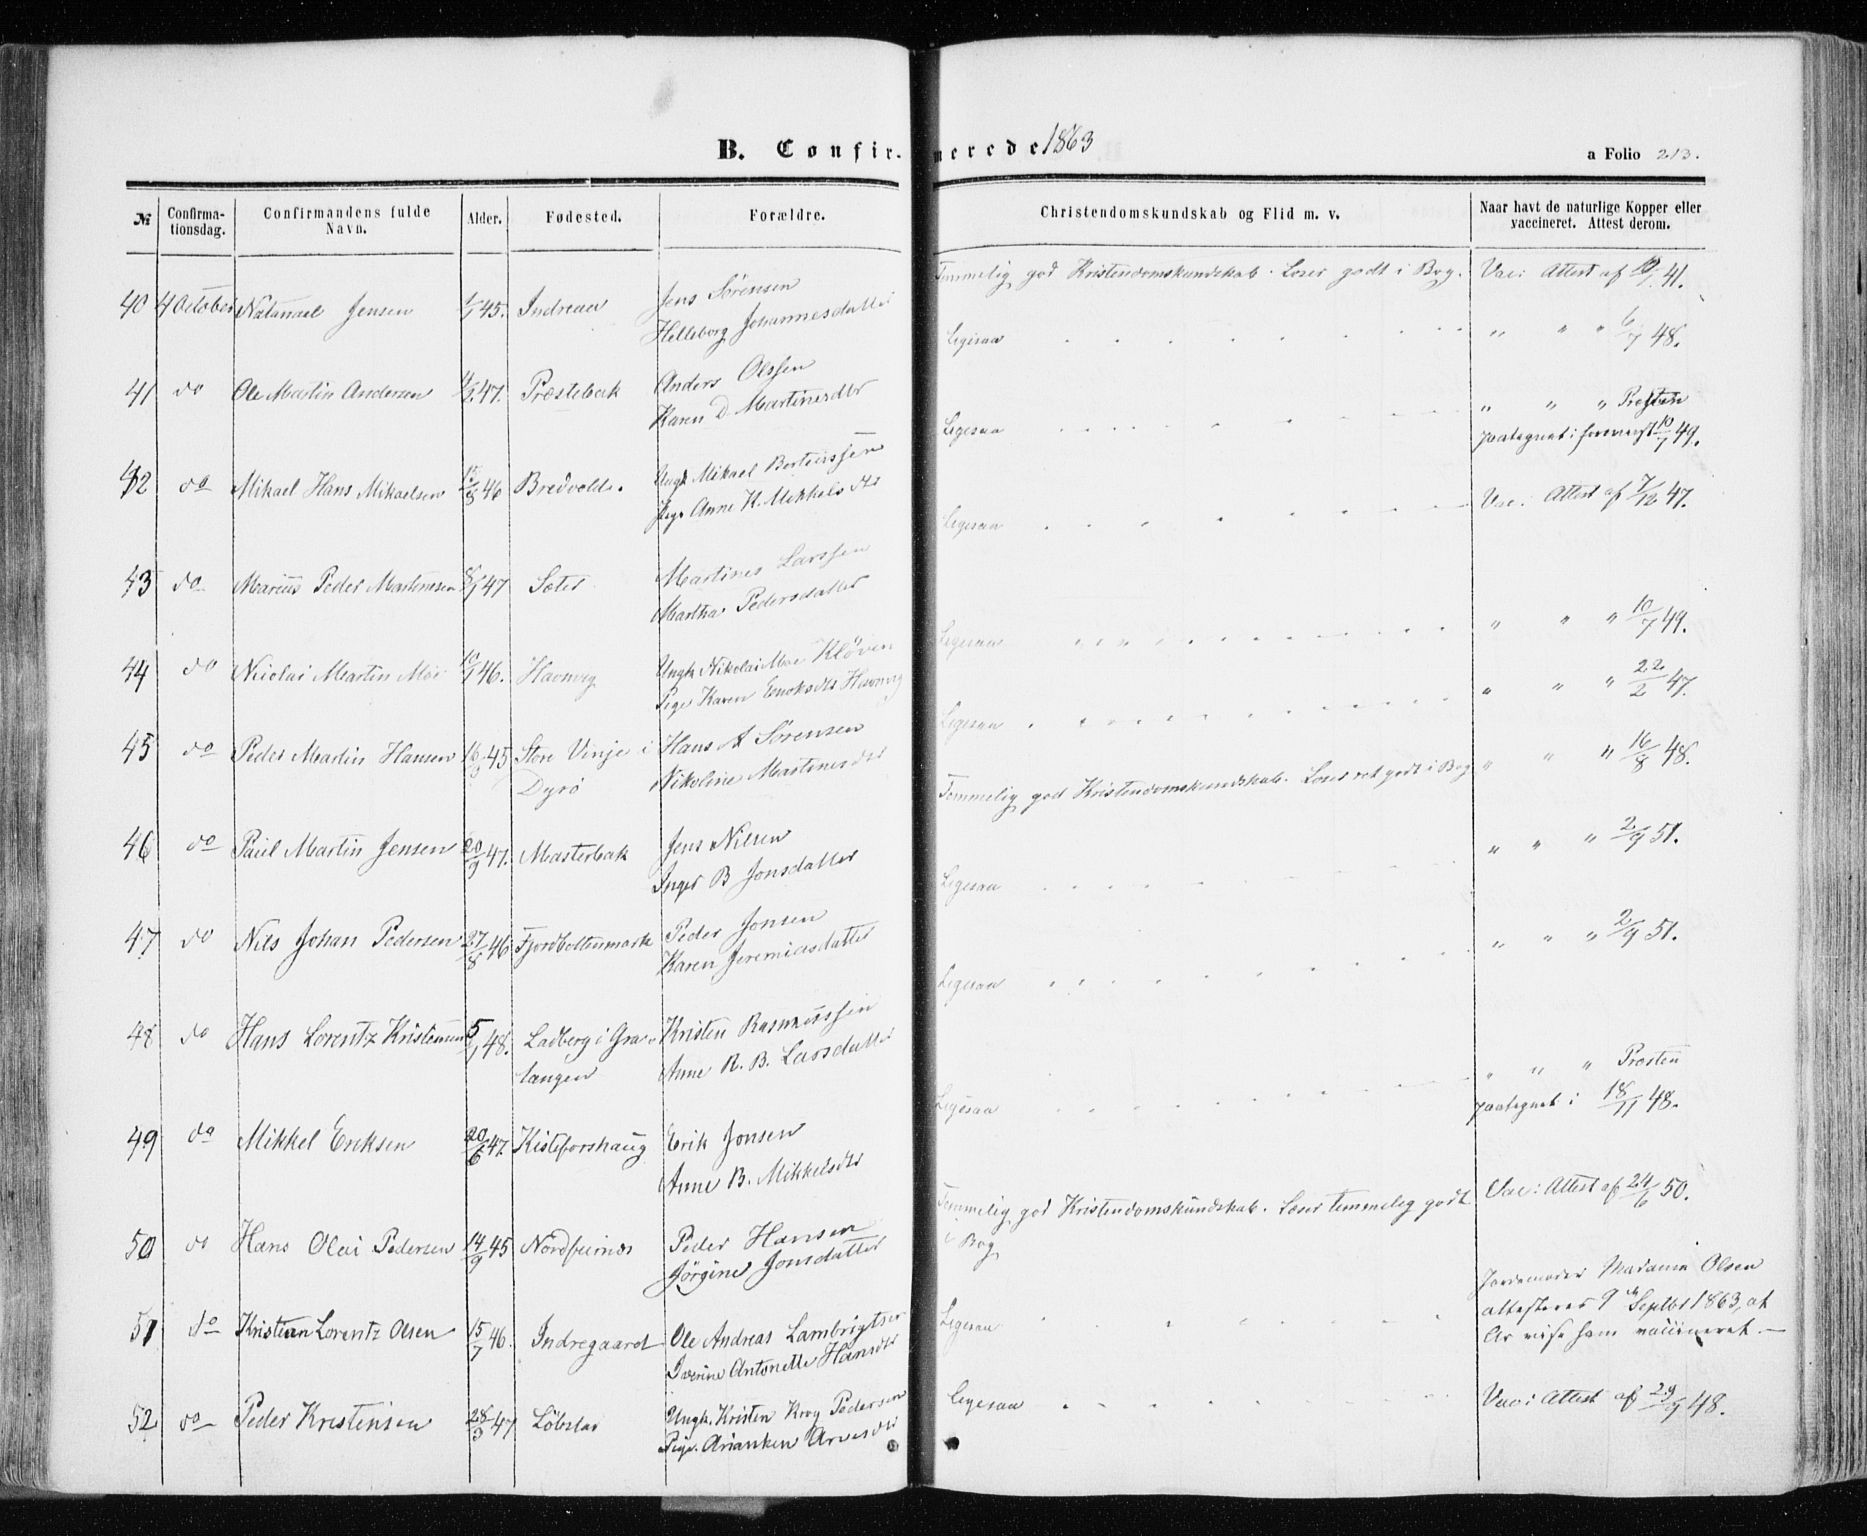 B. Confirmerede 1863
a Folio 213.
№ Confirmationsdag. Confirmandens fulde Navn. Alder. Fødested. Forældre. Christendomskundskab og Flid m. v. Naar havt de naturlige Kopper eller vaccineret. Attest derom.
Temmelig god Kristendomskundskab. Læser godt i Bog. Vac: Attest af 41.
40 4 October Natanael Jensen 45. Indreaa Jens Sørensen
Helleborg Johannesdatter
Ligesaa " " " 6/7 48.
41 do Ole Martin Andersen 47. Præstebak Anders Olssen
Karen D Martinesdtr
Ligesaa " " " Præsten
paategnet i 10/7 49.
42 do Mikael Hans Mikaelsen 15/8 46 Bredvold. Ungk Mikael Berteussen
Pige Anne K. Mikkelsdtr
Ligesaa Vac: Attest af 7/12 47.
43 do Marius Peder Martinesen 47 Sæter Martines Larssen
Martha Pedersdatter
Ligesaa " " " 10/7 49.
44 do Nicolai Martin Moe 46. Havnvig Ungk Nikolai Moe Kløven
Pige Karen Enoksdtr Havnvig
Ligesaa " " " 22/2 47.
45 do Peder Martin Hansen 16/3 45 Store Vinje i Dyrø Hans A Sørensen
Nikoline Martinesdtr
" " " 16/8 48.
Temmelig god Kristendomskundskab. Læser ret godt i Bog
46 do Paul Martin Jensen 20/9 47. Masterbak Jens Nilsen
Inger B Jonsdatter
Ligesaa " " " 2/9 51.
47 do Nils Johan Pedersen 27/8 46 Fjordbottenmark Peder Jonsen
Karen Jeremiasdatter
Ligesaa " " " 2/9 51.
48 do Hans Lorentz Kristensen 5/1 48. Ladberg i Gratangen Kristen Rasmussen
Anne R. B. Larsdatter
Ligesaa " " " Præsten
paategnet i 18/11 48.
49 do Mikkel Eriksen 20/6 47. Kisteforshaug Erik Jonsen
Anne B. Mikkelsdtr
Temmelig god Kristendomskundskab. Læser temmelig godt i Bog Vac: Attest af 24/6 50.
50 do Hans Olai Pedersen 14/9 45 Nordfurnes Peder Hansen
Jørgine Jonsdatter
Jordemoder Madame Olsen
attesteres 9de Septbr 1863, at
51 do Kristian Lorentz Olsen 15/7 46. Indregaard Ole Andreas Lambrigtsen
Iverine Antonette Hansdtr
Ligesaa
52 do Peder Kristensen 28/3 47 Løbstad Ungk. Kristen Krog Pedersen
Pige. Arianken Arvesdtr
Ligesaa Vac: Attest af 29/9 48.